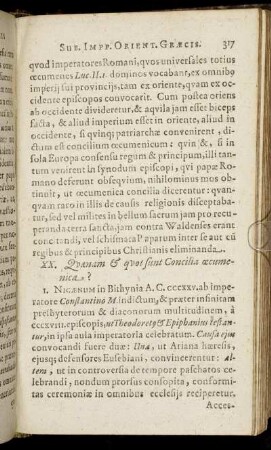 SUB. IMPP. ORIENT. GRÆCIS. 317
qvod imperatores Romani, qvos universales totius
œcumenes Luc. II.1 dominos vocabant, ex omnibꝰ
imperij sui provincijs, tam ex oriente, qvam ex oc-
cidente episcopos convocarit. Cum postea oriens
ab occidente divideretur, & aqvila jam esset biceps
facta, & aliud imperium esset in oriente, aliud in
occidente, si qvinqꝫ patriarchæ convenirent, di-
ctum est concilium œcumenicum: qvin & , si in
sola Europa consensu regum & principum, illi tan-
tum venirent in synodum episcopi, qvi papæ Ro-
mano deferunt obseqvium, nihilominus mos ob-
tinuit, ut œcumenica concilia dicerentur: qvanqv-
am raro in illis de causis religionis disceptaba-
tur, sed vel milites in bellum sacrum jam pro recu-
peranda terra sancta, jam contra Waldenses erant
conc tandi, vel schismata Paparum inter se aut cū
regibus & principibus Christianis eliminanda.
XX. Qvænam & qvot sint Concilia œcume-
nica?
1. NICÆNUM in Bithynia A. C. CCCXXV. ab impe-
ratore Constantino M. indictum, & præter infinitam
presbyterorum & diaconorum multitudinem, à
CCCXVIII. episcopis, ut Theodoretꝰ & Epiphaniꝰ testan-
tur, in ipsa aula imperatoria celebratum. Causæ ejus
convocandi fuere duæ: Una, ut Ariana hæresis,
ejusqꝫ defensores Eusebiani, convincerentur: al-
tera, ut in controversia de tempore paschatos ce-
lebrandi, nondum prorsus consopita, conformi-
tas ceremoniæ in omnibus ecclesijs reciperetur.
Acces-